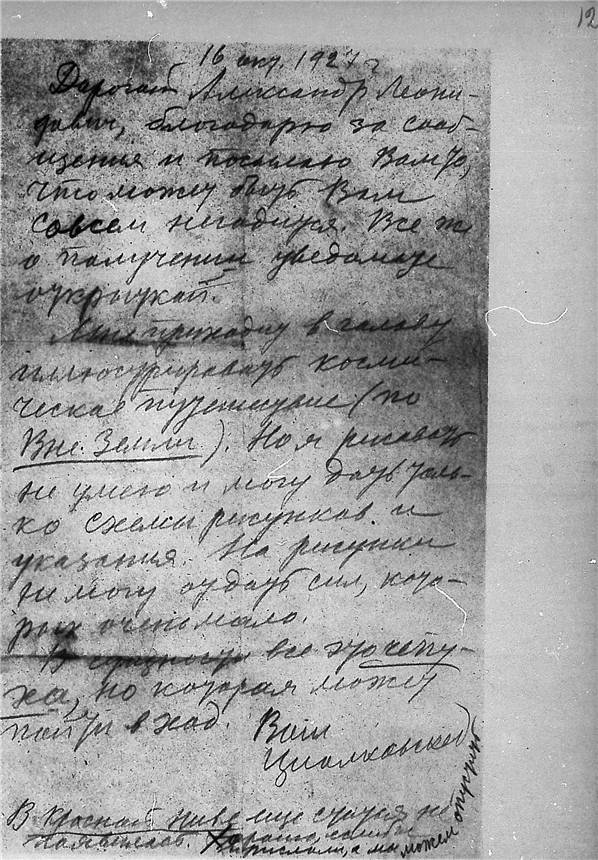 12
16 окт. 1927 г
Дорогой Александр Леони-
дович, благодарю за сооб-
щения и посылаю Вам то,
что может быть Вам
совсем негодится. Все же
о получении уведомите
открыткой.
Мне приходит в голову
иллюстрировать косми-
ческое путешествие (по
Вне Земли). Но я рисовать
не умею и могу дать толь-
ко схемы рисунков и
указания. На рисунки
не могу отдать сил, кото-
рых очень мало.
В сущности все это чепу-
ха, но которая может
пойти в ход. Ваш
Циолковский
В Красной Ниве еще статья не
появилась.
прислали, а мы можем опустить